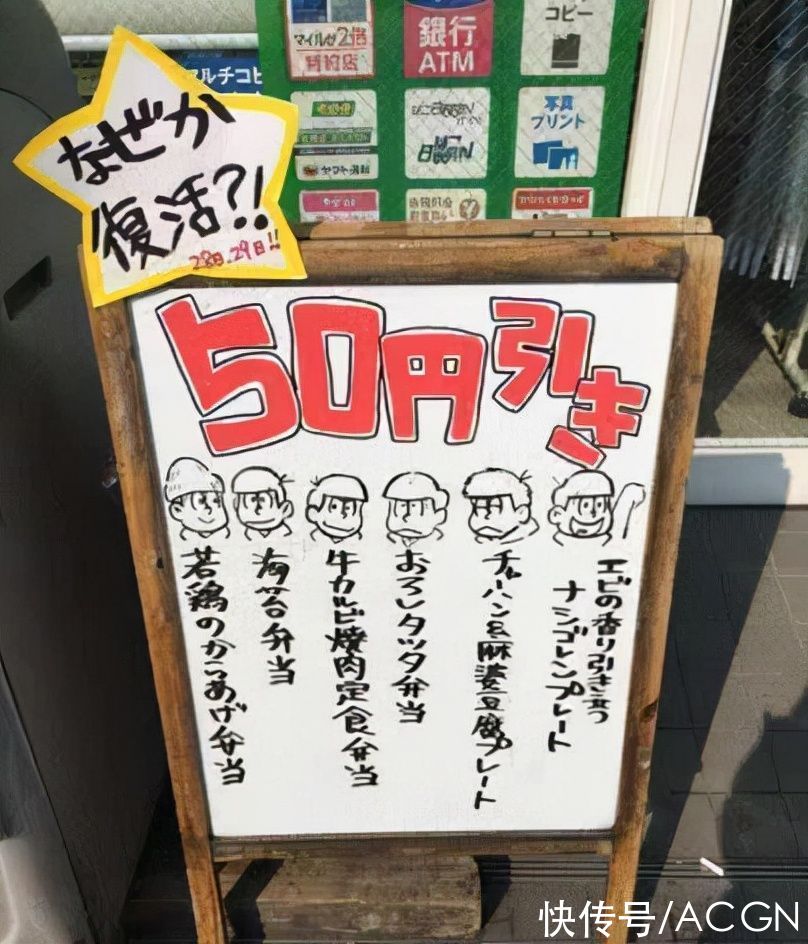 マイルが2倍
特約店
銀行
ATM
コピー
マルチコピ
写真
プリント
なぜか
復活?!
28日.29日!!
50円引き
エビの香り引き立つ
ナシゴレンプレート
チャーハン&麻婆豆腐プレート
おろしタツタ弁当
牛カルビ焼肉定食弁当
海苔弁当
若鶏のからあげ弁当
快传号/ACGN